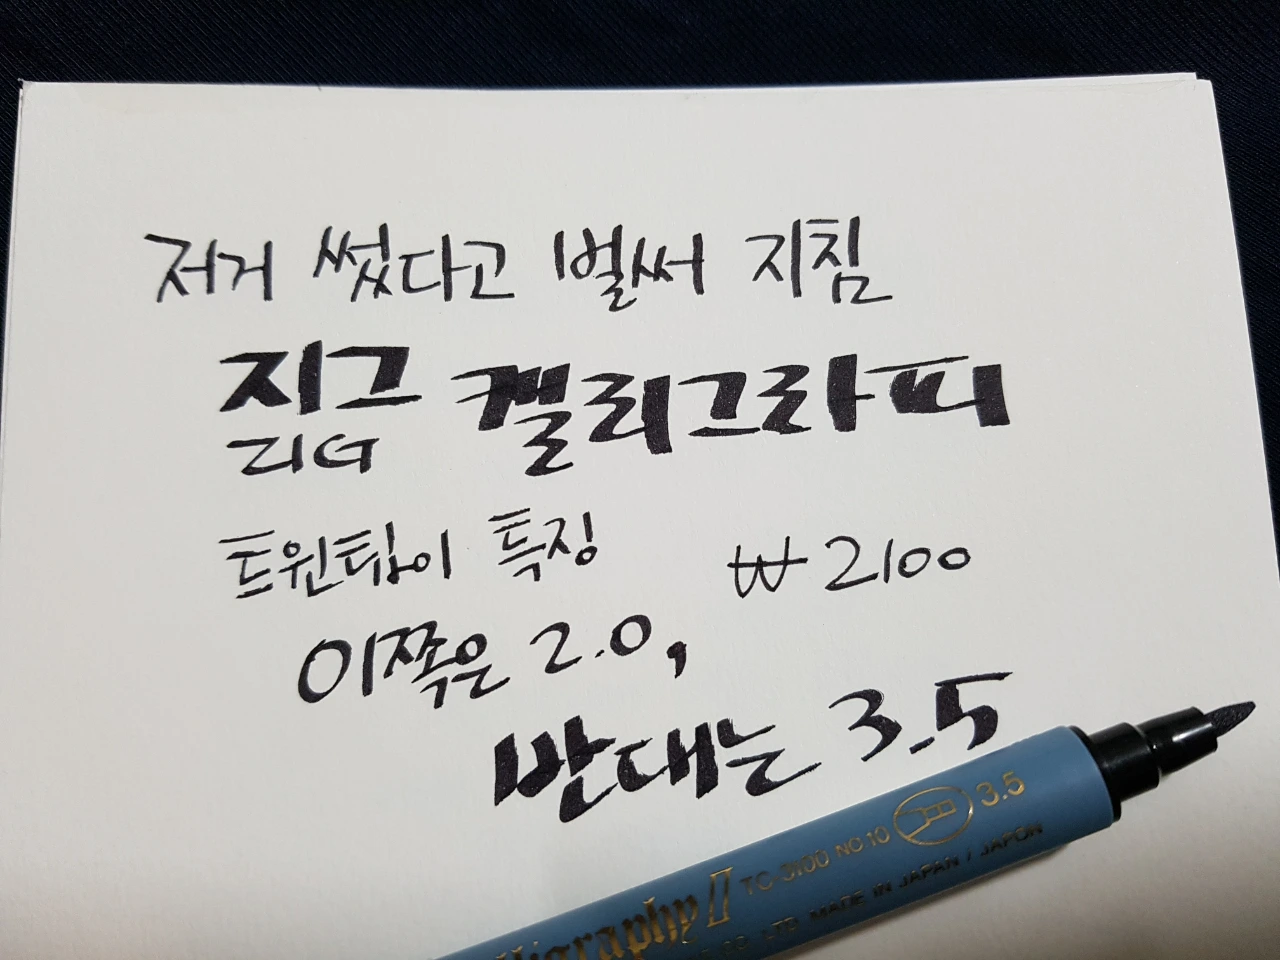 저거 썼다고 벌써 지침
지그 캘리그라피
ZIG
트윈팁이 특징 ₩2100
이쪽은 2.0,
반대는 3.5
TC-3100 NO 10 3.5
LTD MADE IN JAPAN / JAPON